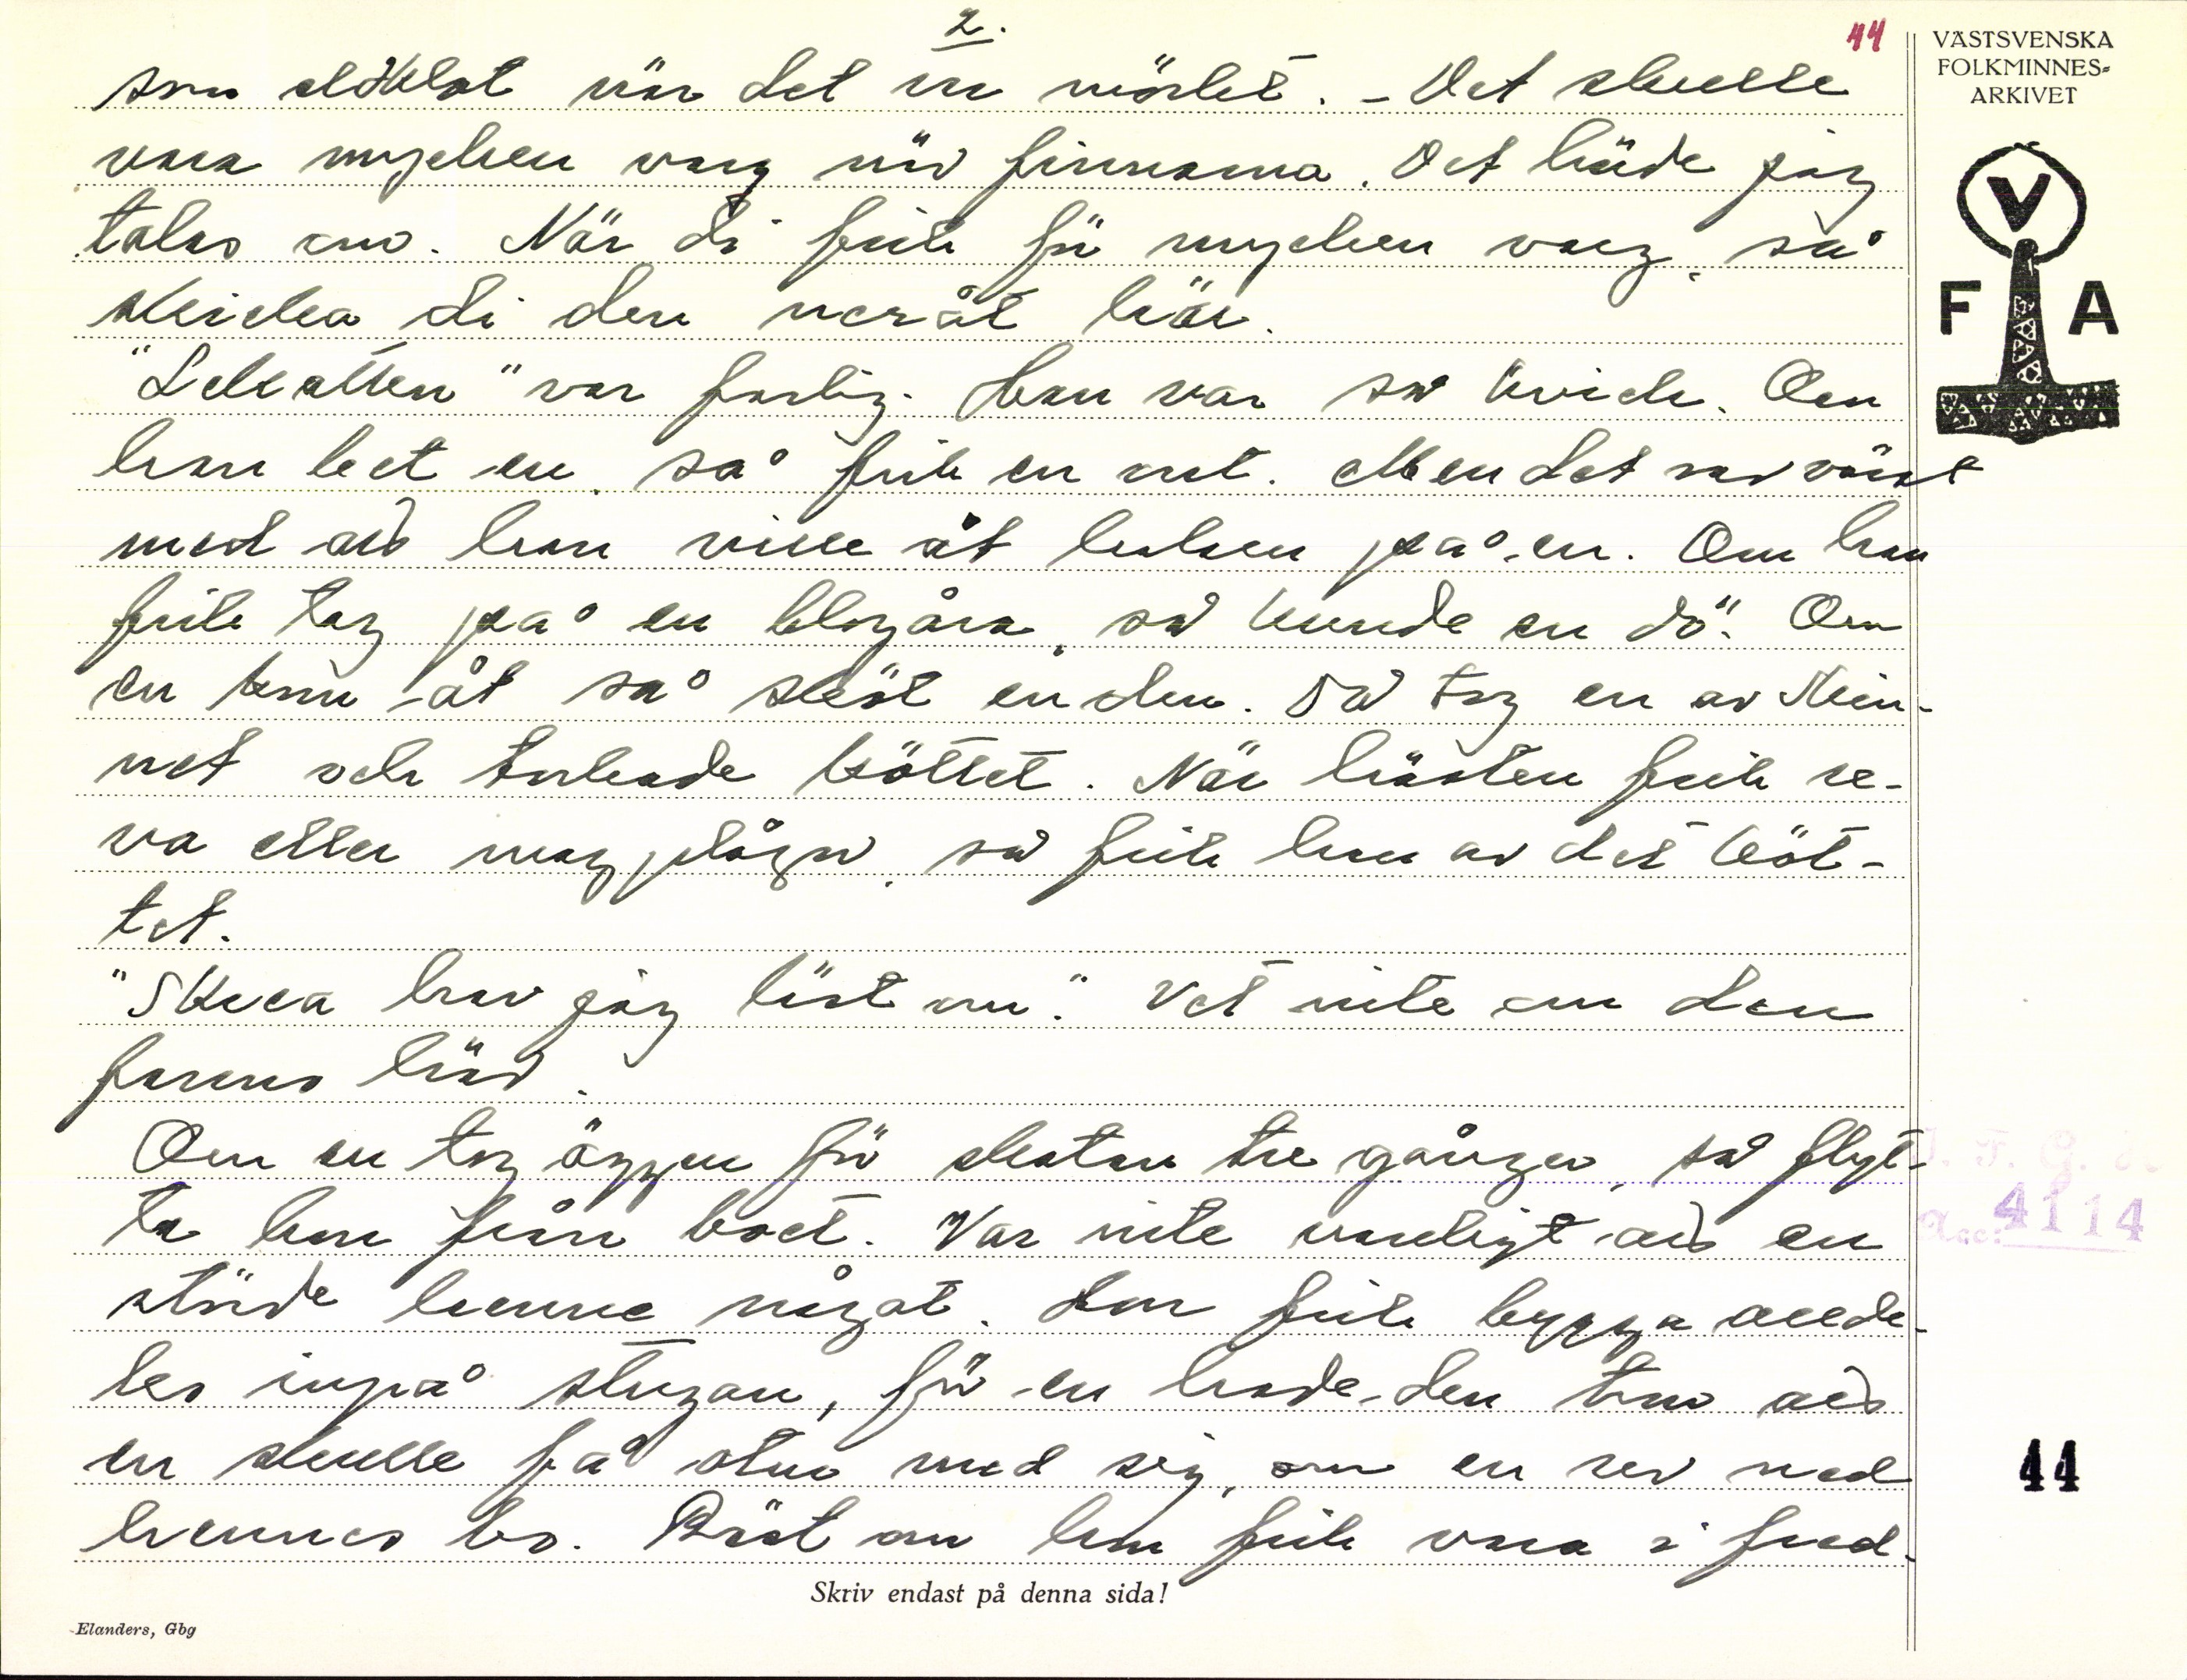 2.
44
VÄSTSVENSKA
FOLKMINNES-
ARKIVET
V
F A
som eldklot när det va mörkt. - Det skulle
vara mycken varg när finnarna. Det hörde jag
talas om. När di feck för mycken varg, så
skicka di den neråt här.
"Lekatten" var farlig. Han var så kvick. Om
han bet en, så feck en ont. Men det var värst
med att han ville åt halsen på en. Om han
feck tag på en blogåra, så kunde en dö. Om
en kom åt så sköt en den. Så tog en av skin-
net och torkade köttet. När hästen feck re-
va eller magplågor, så feck han av det köt-
tet.
"Skrea har jag läst om". Vet inte om den
fanns här.
Om en tog äggen för skatan tre gånger, så flyt-
ta hon från boet. Var inte vanligt att en
störde henne något. Hon feck bygga allde-
les inpå stugan, för en hade den tron att
en skulle få otur med sig, om en rev ned
hennes bo. Bäst om hon feck vara i fred.
J. F. G. H
Acc: 4114
44
Skriv endast på denna sida!
Elanders, Gbg